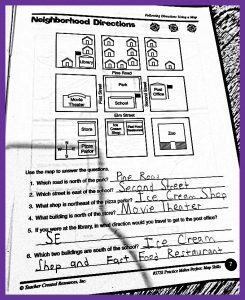 Following Directions Using a Map
Neighborhood Directions
Library
Pine Road
Park
School
Movie Theater
First Street
Post Office
Elm Street
Store
Pizza Parlor
Ice Cream Shop
Fast Food Restaurant
Zoo
Use the map to answer the questions.
1. Which road is north of the park? Pine Road
2. Which street is east of the school? Second Street
3. What shop is northeast of the pizza parlor? Ice Cream Shop
4. What building is north of the store? Movie Theater
5. If you were at the library, in what direction would you travel to get to the post office?
SE
6. Which two buildings are south of the school? Ice Cream
Shop and Fast Food Restaurant
© Teacher Created Resources, Inc.
7
#3731 Practice Makes Perfect: Map Skills